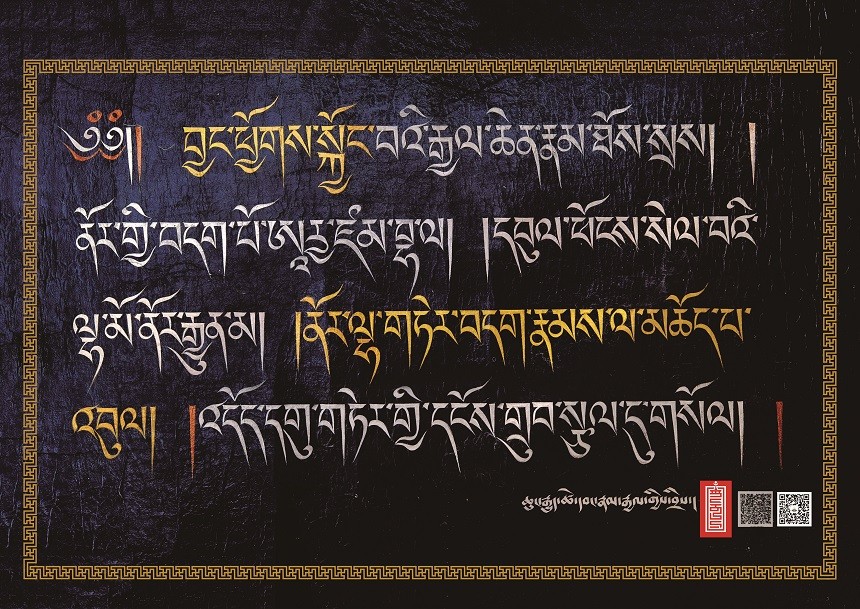 ༄༅།། བྱང་ཕྱོགས་སྐྱོང་བའི་རྒྱལ་ཆེན་རྣམ་ཐོས་སྲས། །
ནོར་གྱི་བདག་པོ་ཨཱརྱ་ཛཾམ་བྷ་ལ། །དབུལ་ཕོངས་སེལ་བའི་
ལྷ་མོ་ནོར་རྒྱུན་མ། །ནོར་ལྷ་གཏེར་བདག་རྣམས་ལ་མཆོད་པ་
འབུལ། །འདོད་དགུ་གཏེར་གྱི་དངོས་གྲུབ་སྩལ་དུ་གསོལ། །